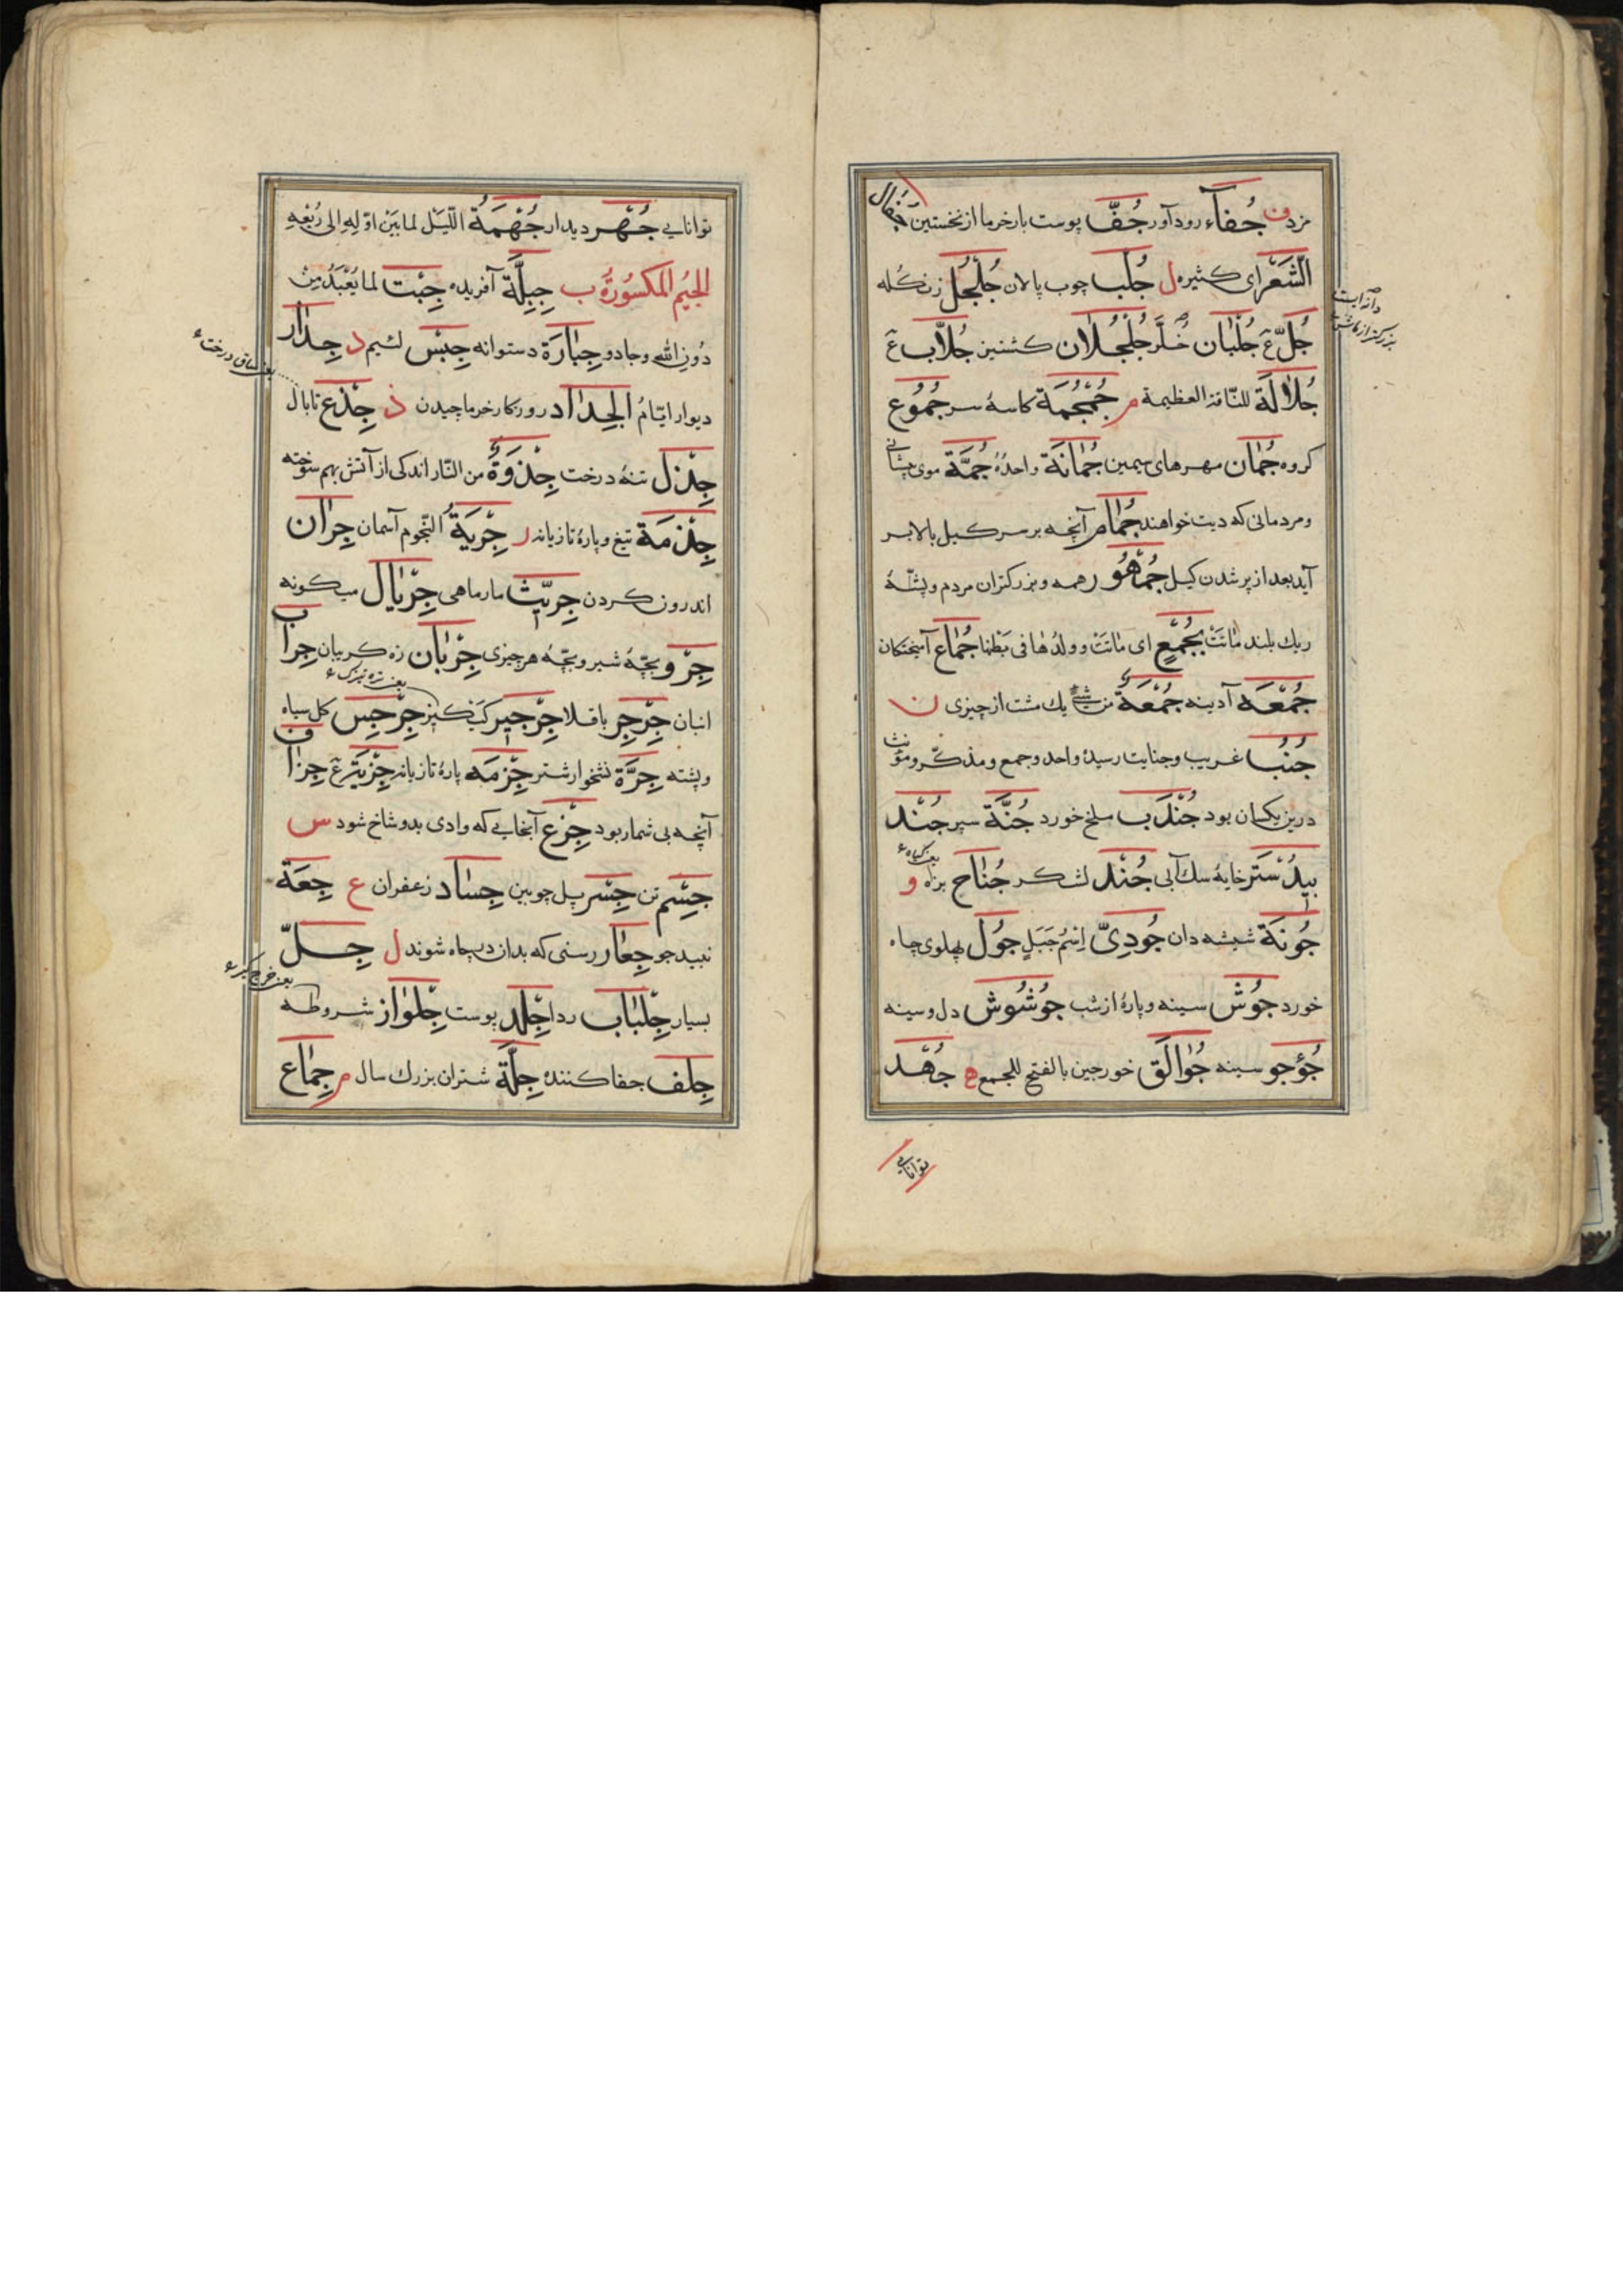 مزد ف جُفاۤء رود آور جُفّ پوست بار خرما از نخستین جُفَال
الشَّعْر ای کثیره ل جُلْب چوب پالان جُلْجُل زنگله
جُلّ عَ جُلْبَان خُلَّر جُلْجُلَان کشنیز جُلَّاب عَ
جُلَالَة للنّاقة العظیمة م جُمْجُمَة کاسهٔ سر جُمُوع
کروه جُمَان مهرهای سیمین جُمَانَة واحدُهُ جُمَّة موی پیشانی
و مردمانی که دیت خواهند جُمَام آنچه بر سر کیل بالا بر
آید بعد از پر شدن کیل جُمْهُور همه و بزرکتران مردم و پشتهٔ
ریك بلند مَاتَتْ بِجُمْعٍ ای مَاتَتْ و ولدُها فی بَطْنها جُمَّاع آمیختکان
جُمْعَه آدینه جُمْعَةٌ من شیء یك مشت از چیزی ن
جُنُب غریب و جنایت رسیدهٔ واحد و جمع و مذکّر و مؤنث
درین یکسان بود جُنْدَب ملخ خورد جُنَّة سپر جُنْد
بِیدَسْتَر خایهٔ سك آبی جُنْد لشکر جُنَاح بزه و
جُونَة شیشه دان جُودِیّ اِسْمُ جَبَلٍ جُول پهلوی چاه
خورد جُوْش سینه و پارهٔ از شب جُوْشُوش دل و سینه
جُؤْجُو سینه جُوَالَق خورجین بالفتح للجمع ه جُهْد
توانایی
دانه ایست
بزرکتر از ماش
توانایی جُهْر دیدار جُهْمَةُ اللّیْل لما بَیْن اوّلِهِ الی رُبْعِهِ
الجِیْمُ المَکْسُوْرَةُ ب جِبِلَّة آفریده جِبْت لما یُعْبَدُ مِنْ
دُونِ اللّه و جادو جِبَارَة دستوانه جِبْس لئیم د جِدَار
دیوار ایّامُ الجِدَاد روزکار خرما چیدن ذ جِذْع تابال
جِذْل تنهٔ درخت جِذْوَةٌ من النّار اندکی از آتش بهم سوخته
جِذْمَة تیغ و پارهٔ تازیانه ر جِرْیَةُ النّجوم آسمان جِرَان
اندرون کردن جِرِّیْث مار ماهی جِرْیَال می کونه
جِرْو بچّهٔ شیر و بچّهٔ هر چیزی جِرْبَان زه کریبان جِرَاب
انبان جِرْجِر باقلا جِرْجِیر کیکیز جِرْجِس کل سیاه
و پشته جِرَّة نشخوار شتر جِزْمَه پارهٔ تازیانه جِزْیَة عَ جِزَاف
آنچه بی شمار بود جِزْع آنجایی که وادی بدو شاخ شود س
جِسْم تن جِسْر پل چوبین جِسَاد زعفران ع جِعَة
نبید جو جِعَار رسنی که بدان در چاه شوند ل جِلّ
بسیار جِلْبَاب ردا جِلْد پوست جِلْوَاز شروطه
جِلْف جفا کننده جِلَّة شتران بزرك سال م جِمَاع
یعنی ساق درخت